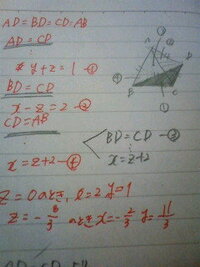 AD=BD=CD=AB
AD=CD
⋮
y+z=1 ①
BD=CD
x-z=2 ②
CD=AB
BD=CD ②
⋮
x=z+2
x=z+2 ④
z=0のとき, x=2 y=1
z=-8/3 のとき x=-2/3 y=11/3
A
B
C
D